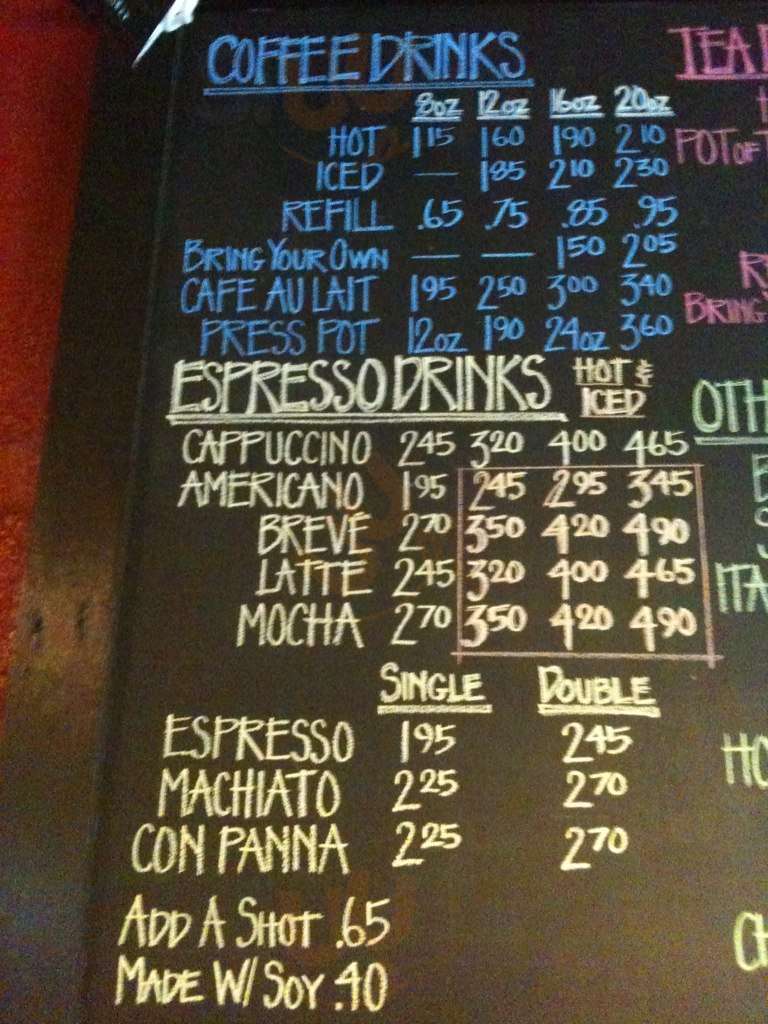 COFFEE DRINKS
8oz 12oz 16oz 20oz
HOT 1 15 1 60 1 90 2 10
ICED — 1 85 2 10 2 30
REFILL .65 .75 .85 .95
BRING YOUR OWN — — 1 50 2 05
CAFE AU LAIT 1 95 2 50 3 00 3 40
PRESS POT 12oz 1 90 24oz 3 60
ESPRESSO DRINKS HOT & ICED
CAPPUCCINO 2 45 3 20 4 00 4 65
AMERICANO 1 95 2 45 2 95 3 45
BREVÉ 2 70 3 50 4 20 4 90
LATTE 2 45 3 20 4 00 4 65
MOCHA 2 70 3 50 4 20 4 90
SINGLE DOUBLE
ESPRESSO 1 95 2 45
MACHIATO 2 25 2 70
CON PANNA 2 25 2 70
ADD A SHOT .65
MADE W/ SOY .40
TEA
POT OF
BRING